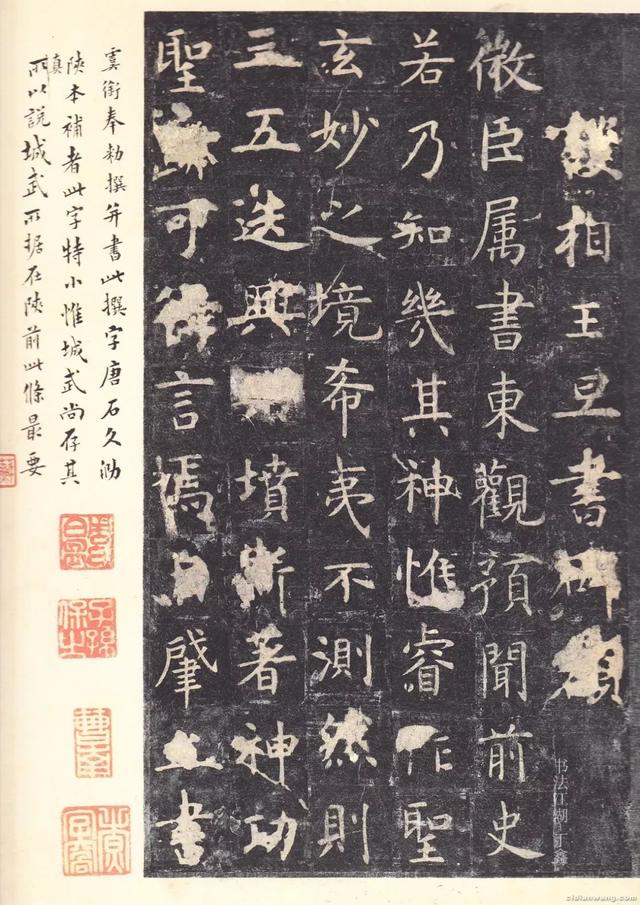 相王旦書碑額
微臣属書東觀預聞前史
若乃知幾其神惟睿作聖
玄妙之境希夷不測然則
三五迭興典墳斯著神功
聖迹可得言焉自肇立書
虞銜奉勑撰并書此撰字唐石久泐
陝本補者此字特小惟城武尚存其
真
所以說城武所据在陝前此條最要
书法江湖
cidianwang.com